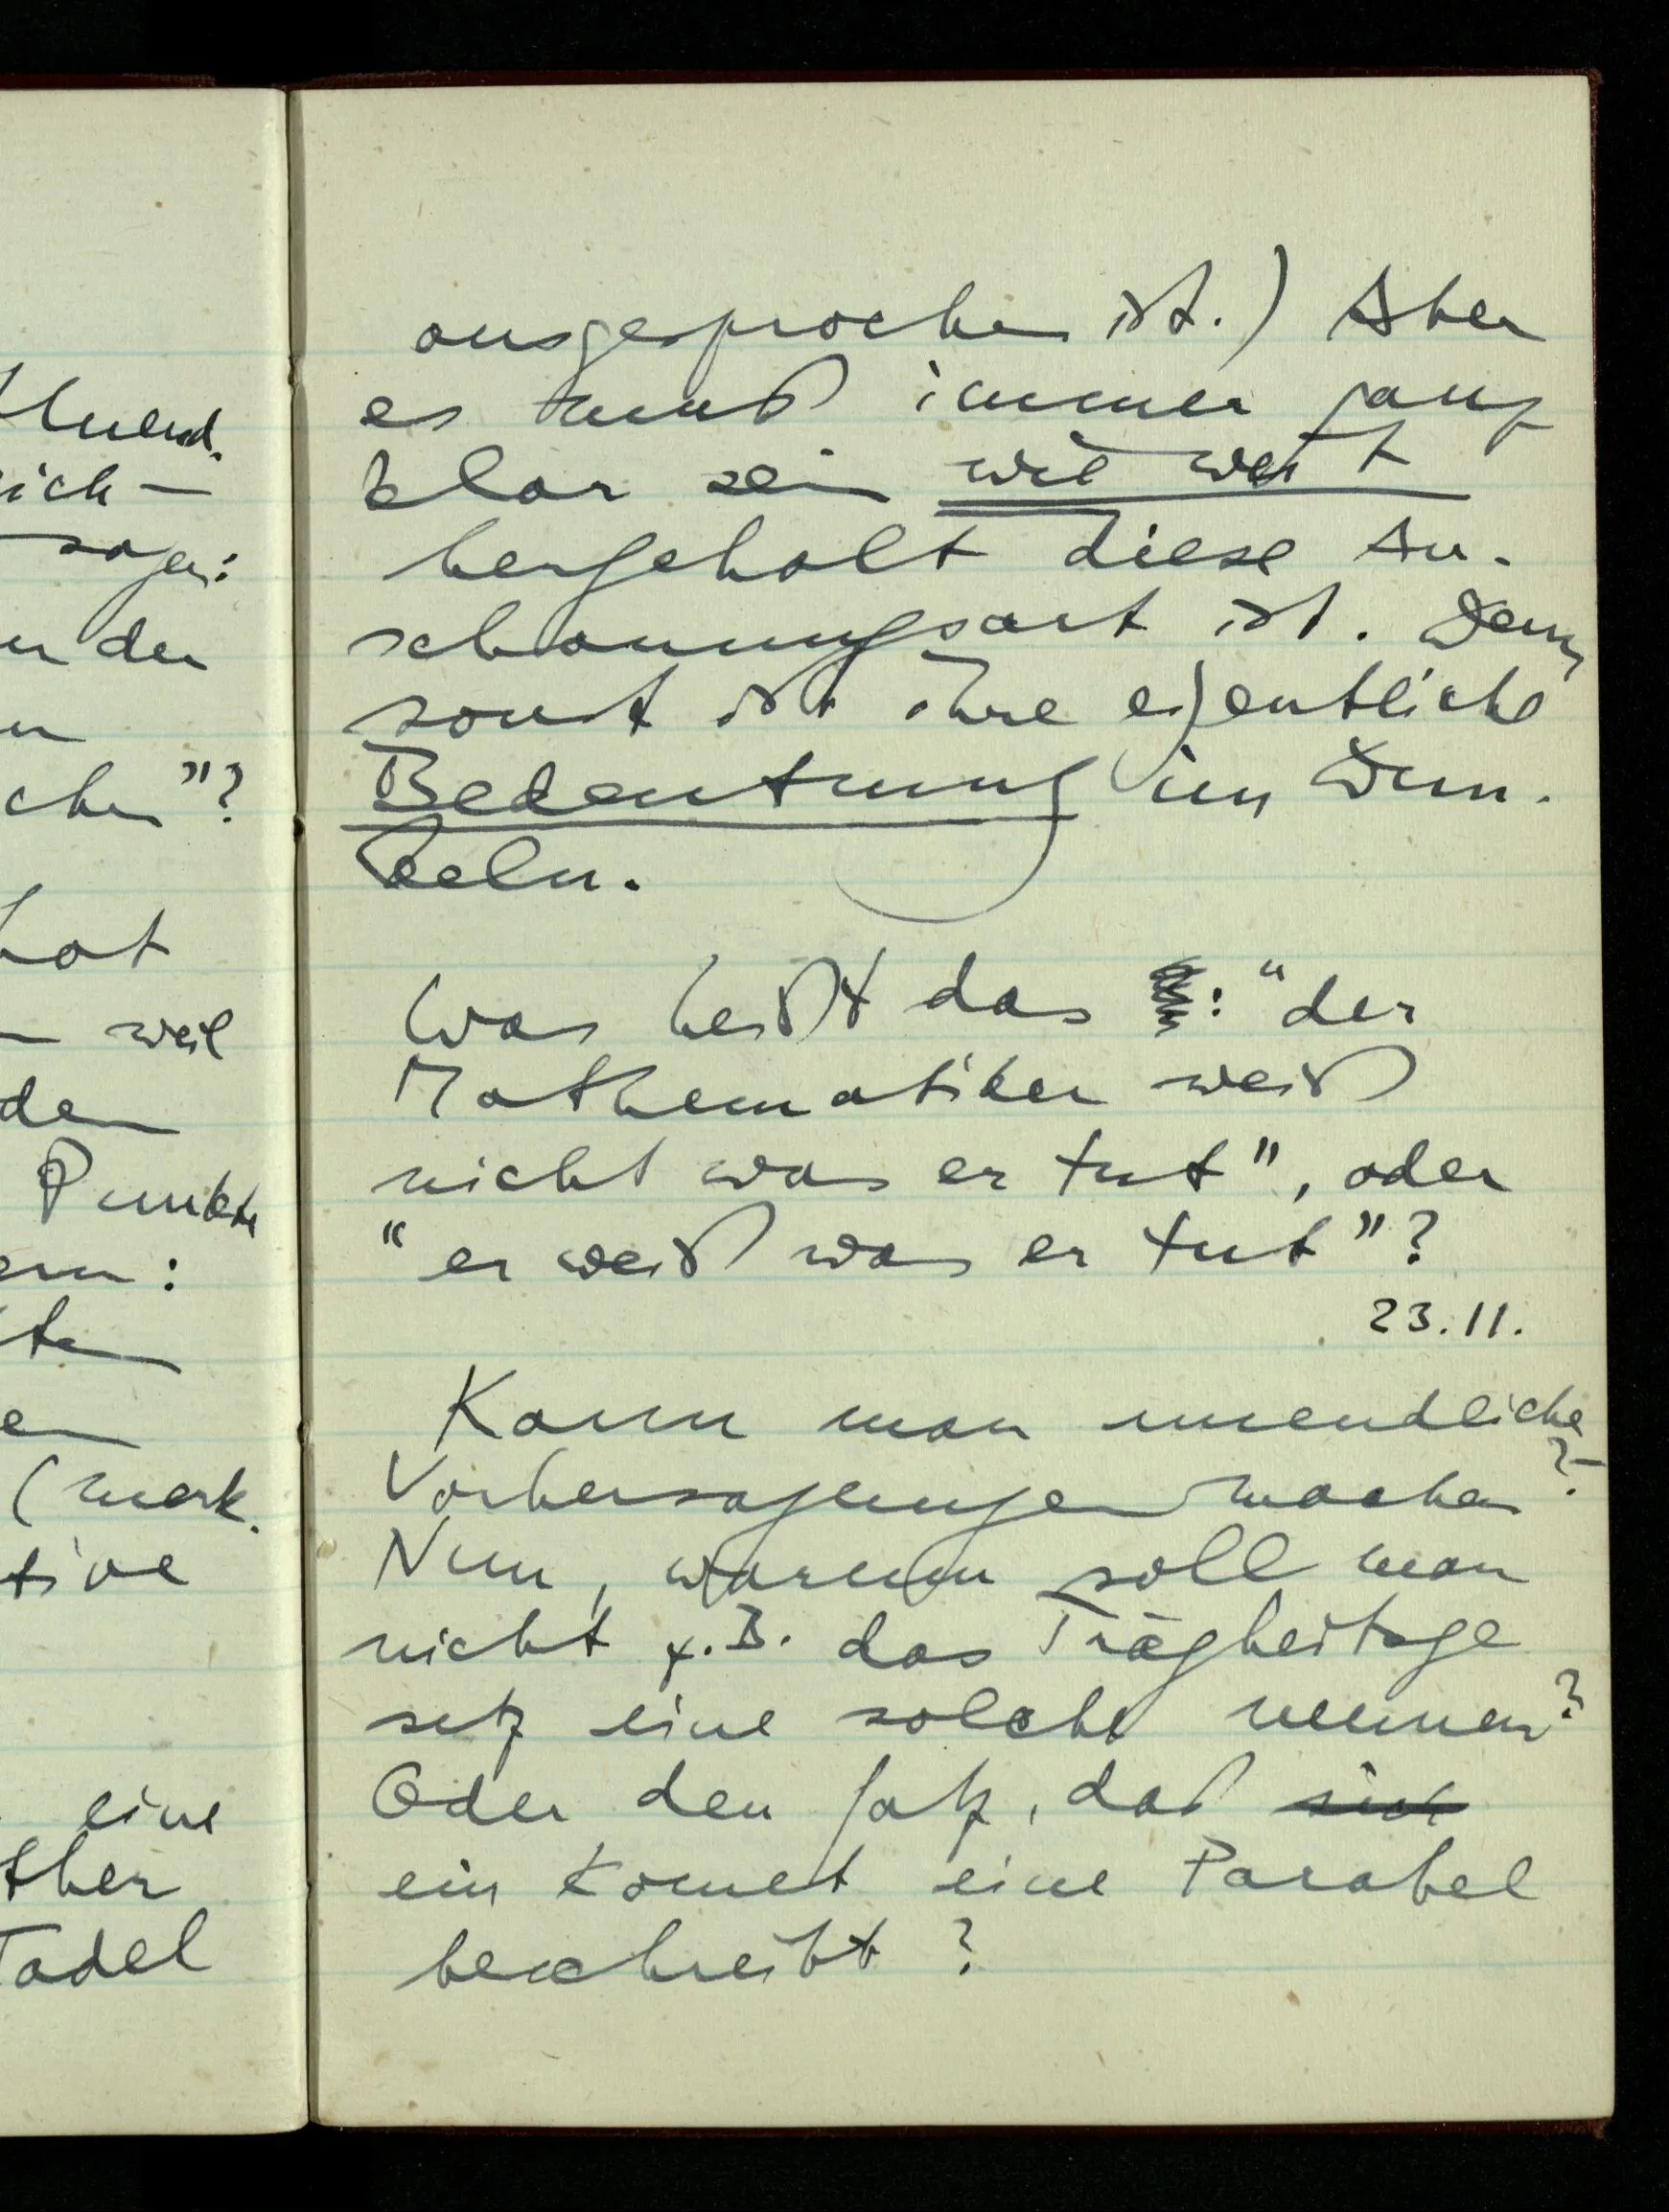 tluend.
ich –
sagen:
in der
n
chen"?
hat
– weil
den
Punkte
ern:
ten
en
(merk.
tive
eine
ther
Tadel
ausgesprochen ist.) Aber
es muß immer ganz
klar sein wie weit
hergeholt diese An-
schauungsart ist. Denn
sonst ist ihre eigentliche
Bedeutung im Dun-
keln.
Was heißt das : "der
Mathematiker weiß
nicht was er tut", oder
"er weiß was er tut"?
23.11.
Kann man unendliche
Vorhersagungen machen? –
Nun, warum soll man
nicht z.B. das Trägheitsge
setz eine solche nennen?
Oder den Satz, daß sich
ein Komet eine Parabel
beschreibt?